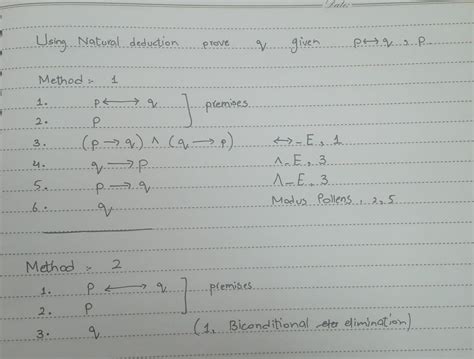 Date:
Using Natural deduction prove q given p↔q, p.
Method :- 1
1. p ⟷ q ] premises
2. p
3. (p → q) ∧ (q → p) ↔-E, 1
4. q → p ∧-E, 3
5. p → q ∧-E, 3
6. q Modus Pollens, 2, 5
Method :- 2
1. p ⟷ q ] premises
2. p
3. q (1, Biconditional elimination)